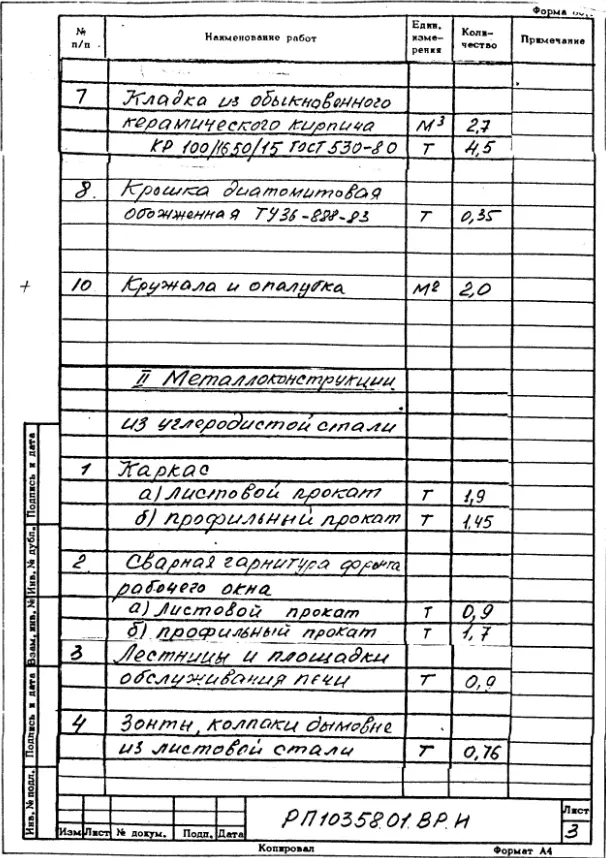 Форма
№ п/п
Наименование работ
Един. изме- рения
Коли- чество
Примечание
7 Кладка из обыкновенного
керамического кирпича м3 2,7
КР 100/1650/15 ГОСТ 530-80 т 4,5
8. Крошка диатомитовая
обожженная ТУ36-888-83 т 0,35
10 Кружала и опалубка м2 2,0
II Металлоконструкции
из углеродистой стали
1 Каркас
а) Листовой прокат т 1,9
б) профильный прокат т 1,45
2. Сварная гарнитура фронта
рабочего окна
а) Листовой прокат т 0,9
б) профильный прокат т 1,7
3 Лестницы и площадки
обслуживания печи т 0,9
4 Зонты, колпаки дымовые
из листовой стали т 0,76
Инв. № подл.
Подпись и дата
Взам. инв. №
Инв. № дубл.
Подпись и дата
Изм Лист № докум. Подп. Дата
РП10358.01.ВР.И
Лист
3
Копировал
Формат А4